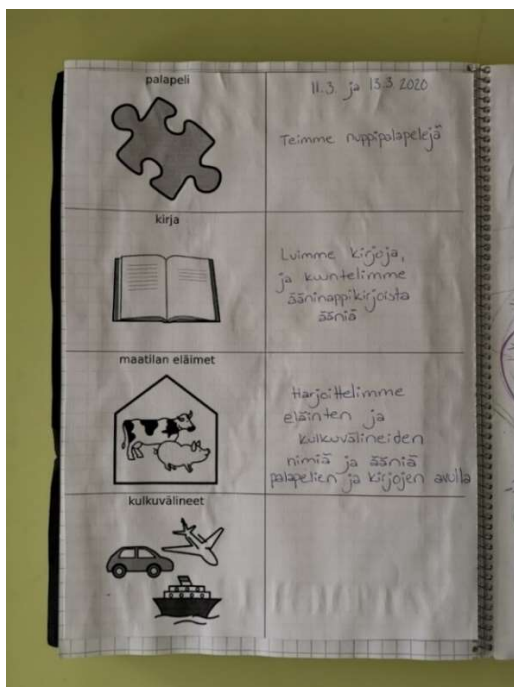 palapeli
11.3. ja 13.3.2020
Teimme nuppipalapelejä
kirja
Luimme kirjoja,
ja kuuntelimme
ääninappikirjoista
ääniä
maatilan eläimet
Harjoittelimme
eläinten ja
kulkuvälineiden
nimiä ja ääniä
palapelien ja kirjojen avulla
kulkuvälineet